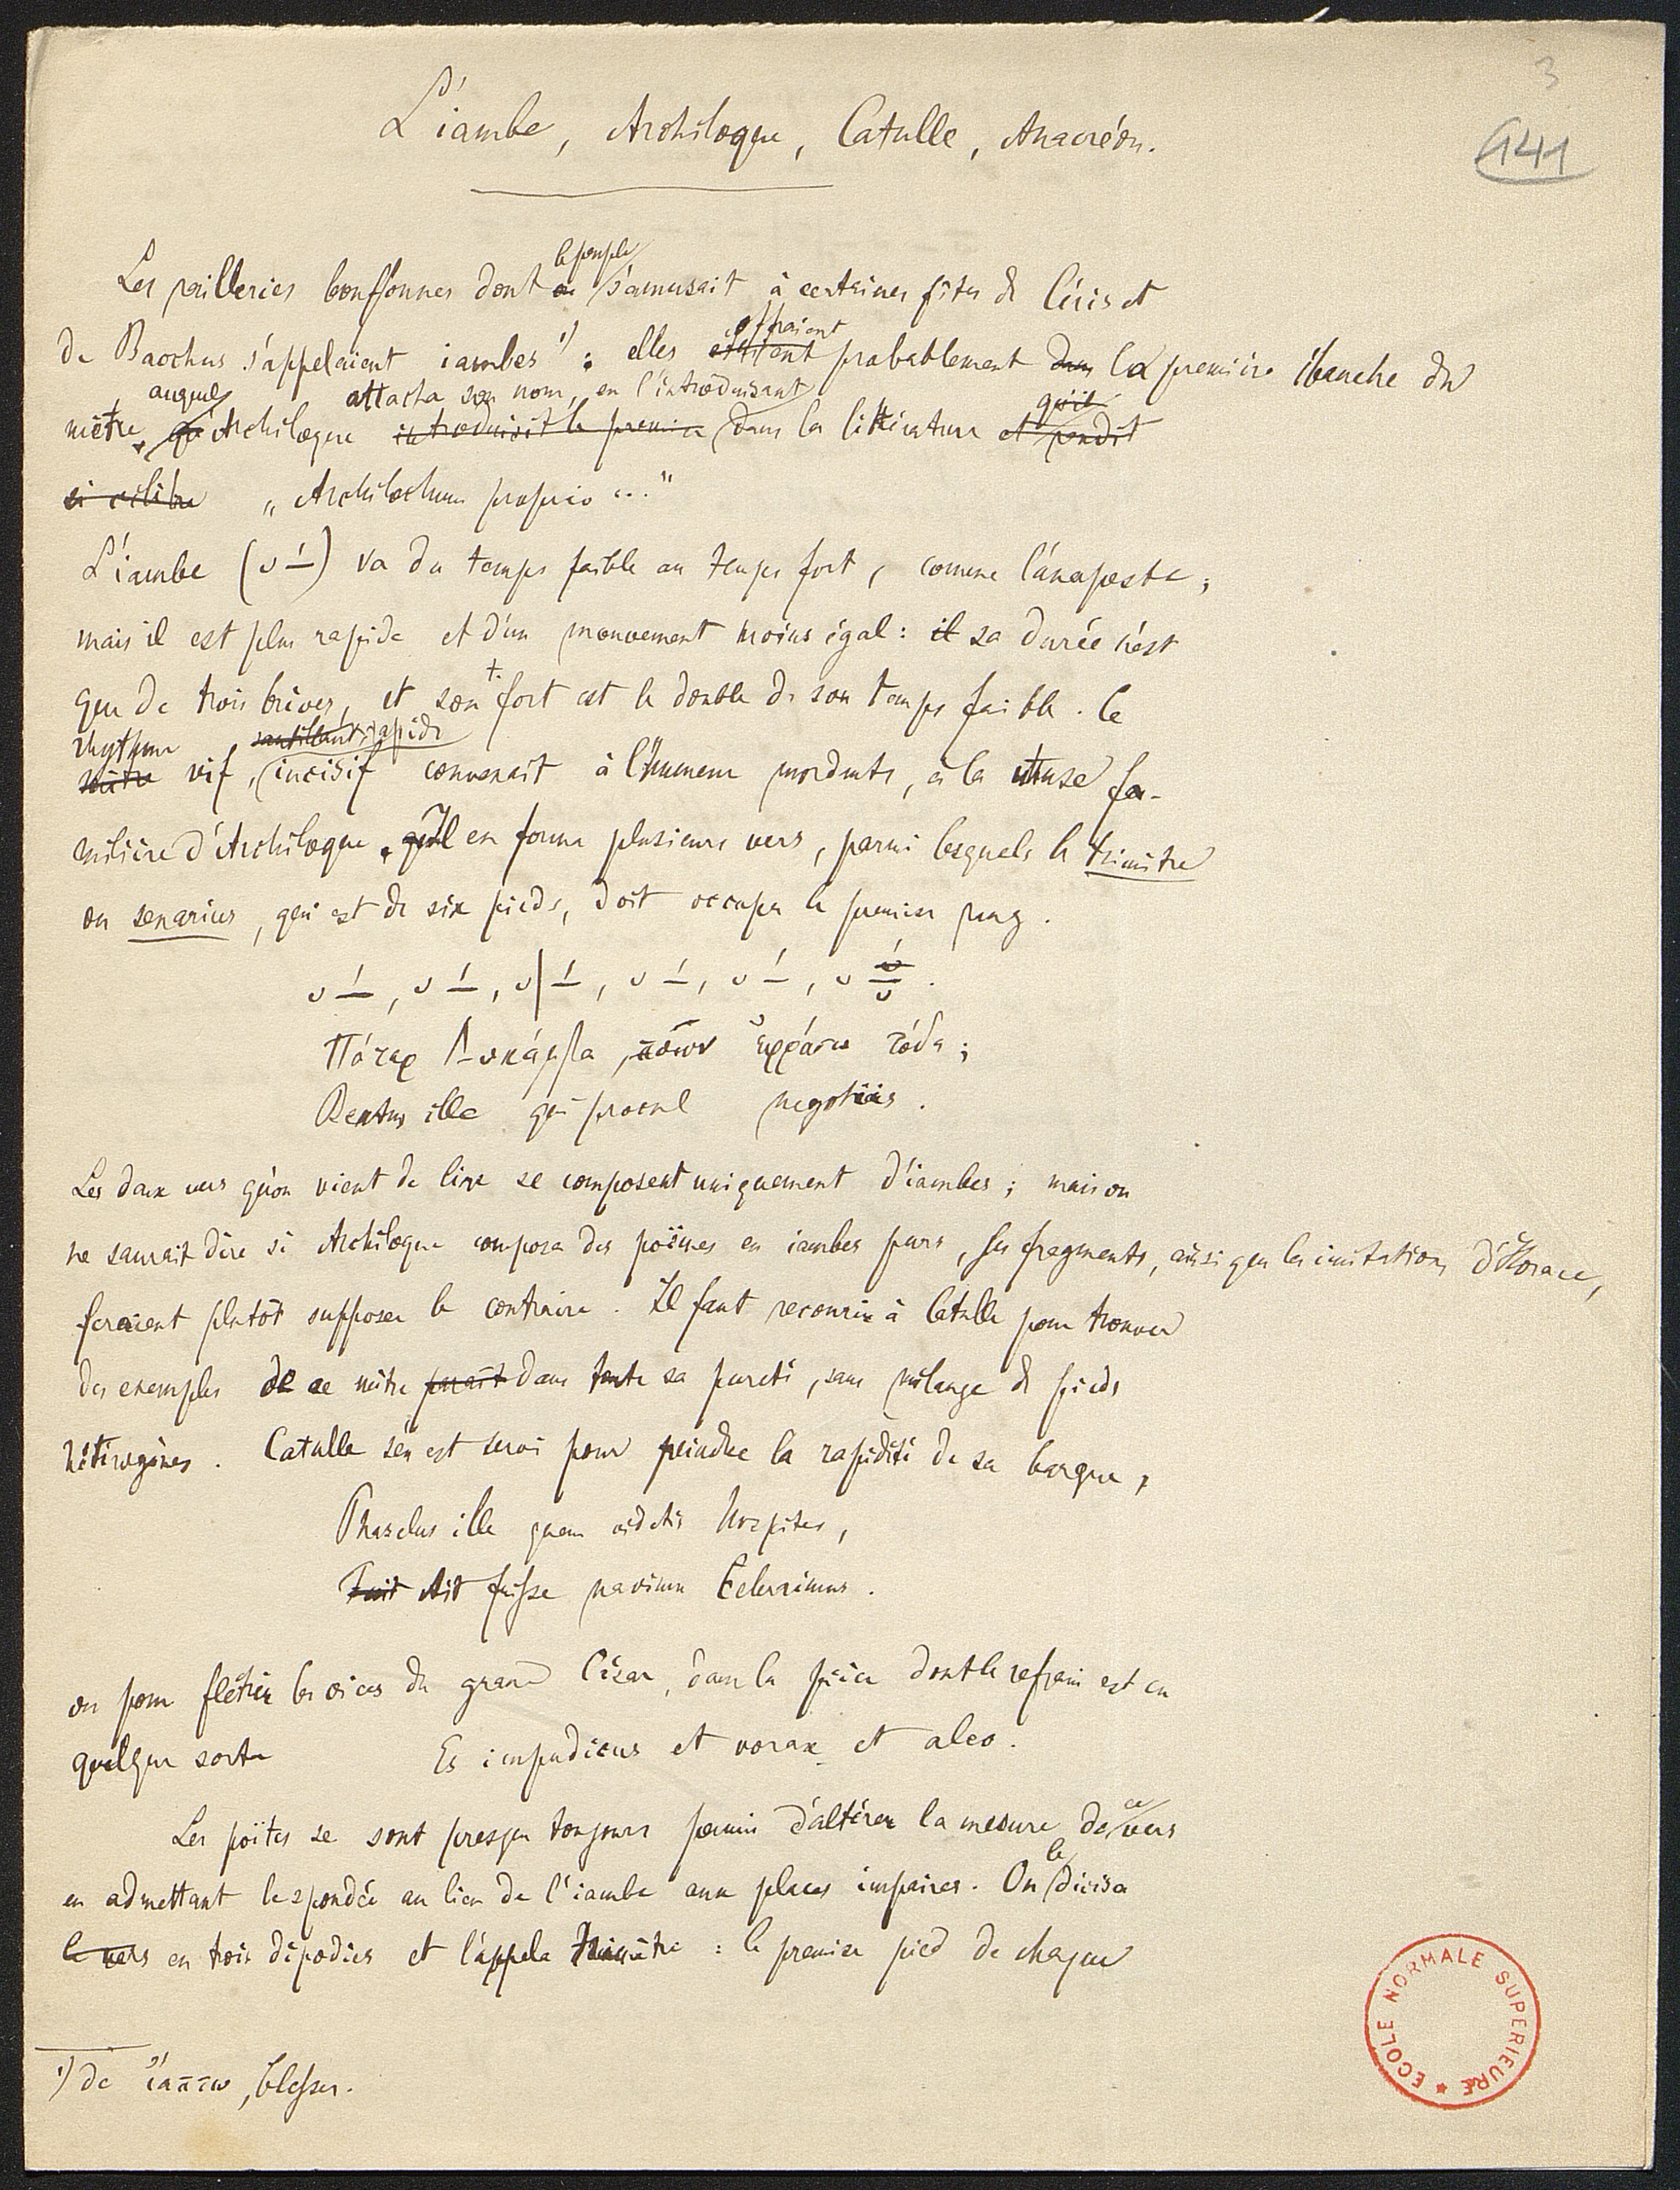 3
141
L'iambe, Archiloque, Catulle, Anacréon.
le peuple
Les railleries bouffonnes dont on s'amusait à certaines fêtes de Cérès et
offraient
de Bacchus s'appelaient iambes ¹) : elles étaient probablement dans la première ébauche du
auquel attacha son nom, en l'introduisant qu'il
mètre, qu' Archiloque introduisit le premier dans la littérature et rendit
si célèbre „ Archilochum proprio ..."
L'iambe (υ –́) va du temps faible au temps fort, comme l'anapeste ;
mais il est plus rapide et d'un mouvement moins égal : il sa durée n'est
t.
que de trois brèves, et son fort est le double de son temps faible. Ce
rhythme sautillant, rapide
mètre vif, incisif convenait à l'humeur mordante, à la muse fa-
milière d'Archiloque. qu'Il en forma plusieurs vers, parmi lesquels le trimètre
ou senarius, qui est de six pieds, doit occuper le premier rang.
υ –́, υ –́, υ|–́, υ –́, υ –́, υ –́.
Πάτερ Λυκάμβα, ποῖον ἐφράσω τόδε ;
Beatus ille qui procul negotiis.
Les deux vers qu'on vient de lire se composent uniquement d'iambes ; mais on
ne saurait dire si Archiloque composa des poëmes en iambes purs, ses fragments, ainsi que les imitations d'Horace,
feraient plutôt supposer le contraire. Il faut recourir à Catulle pour trouver
des exemples de ce mètre parait dans toute sa pureté, sans mélange de pieds
hétérogènes. Catulle s'en est servi pour peindre la rapidité de sa barque,
Phaselus ille quem videtis hospites,
Fuit Ait fuisse navium celerrimus.
ou pour flétrir les vices du grand César, dans la pièce dont le refrain est en
quelque sorte Es impudicus et vorax et aleo.
ce
Les poëtes se sont presque toujours permis d'altérer la mesure de vers
le
en admettant le spondée au lieu de l'iambe aux places impaires. On divisa
le vers en trois dipodies et l'appela trimètre : le premier pied de chaque
¹) de ἰάπτω, blesser.
ECOLE NORMALE SUPERIEURE